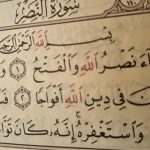 سُورَةُ النَّصْرِ
بِسْمِ اللَّهِ الرَّحْمَٰنِ الرَّحِيمِ
نَصْرُ اللَّهِ وَالْفَتْحُ ١
فِي دِينِ اللَّهِ أَفْوَاجًا ٢
وَاسْتَغْفِرْهُ إِنَّهُ كَانَ